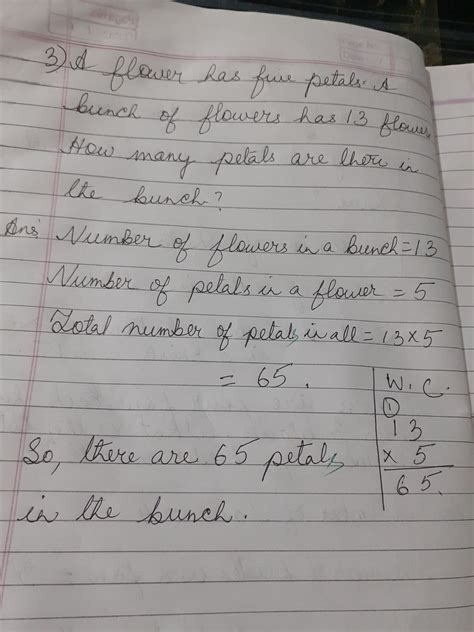 3) A flower has five petals. A
bunch of flowers has 13 flowers
How many petals are there in
the bunch?
Ans Number of flowers in a bunch = 13
Number of petals in a flower = 5
Total number of petals in all = 13 × 5
= 65.
W. C.
1
13
× 5
65.
So, there are 65 petals
in the bunch.